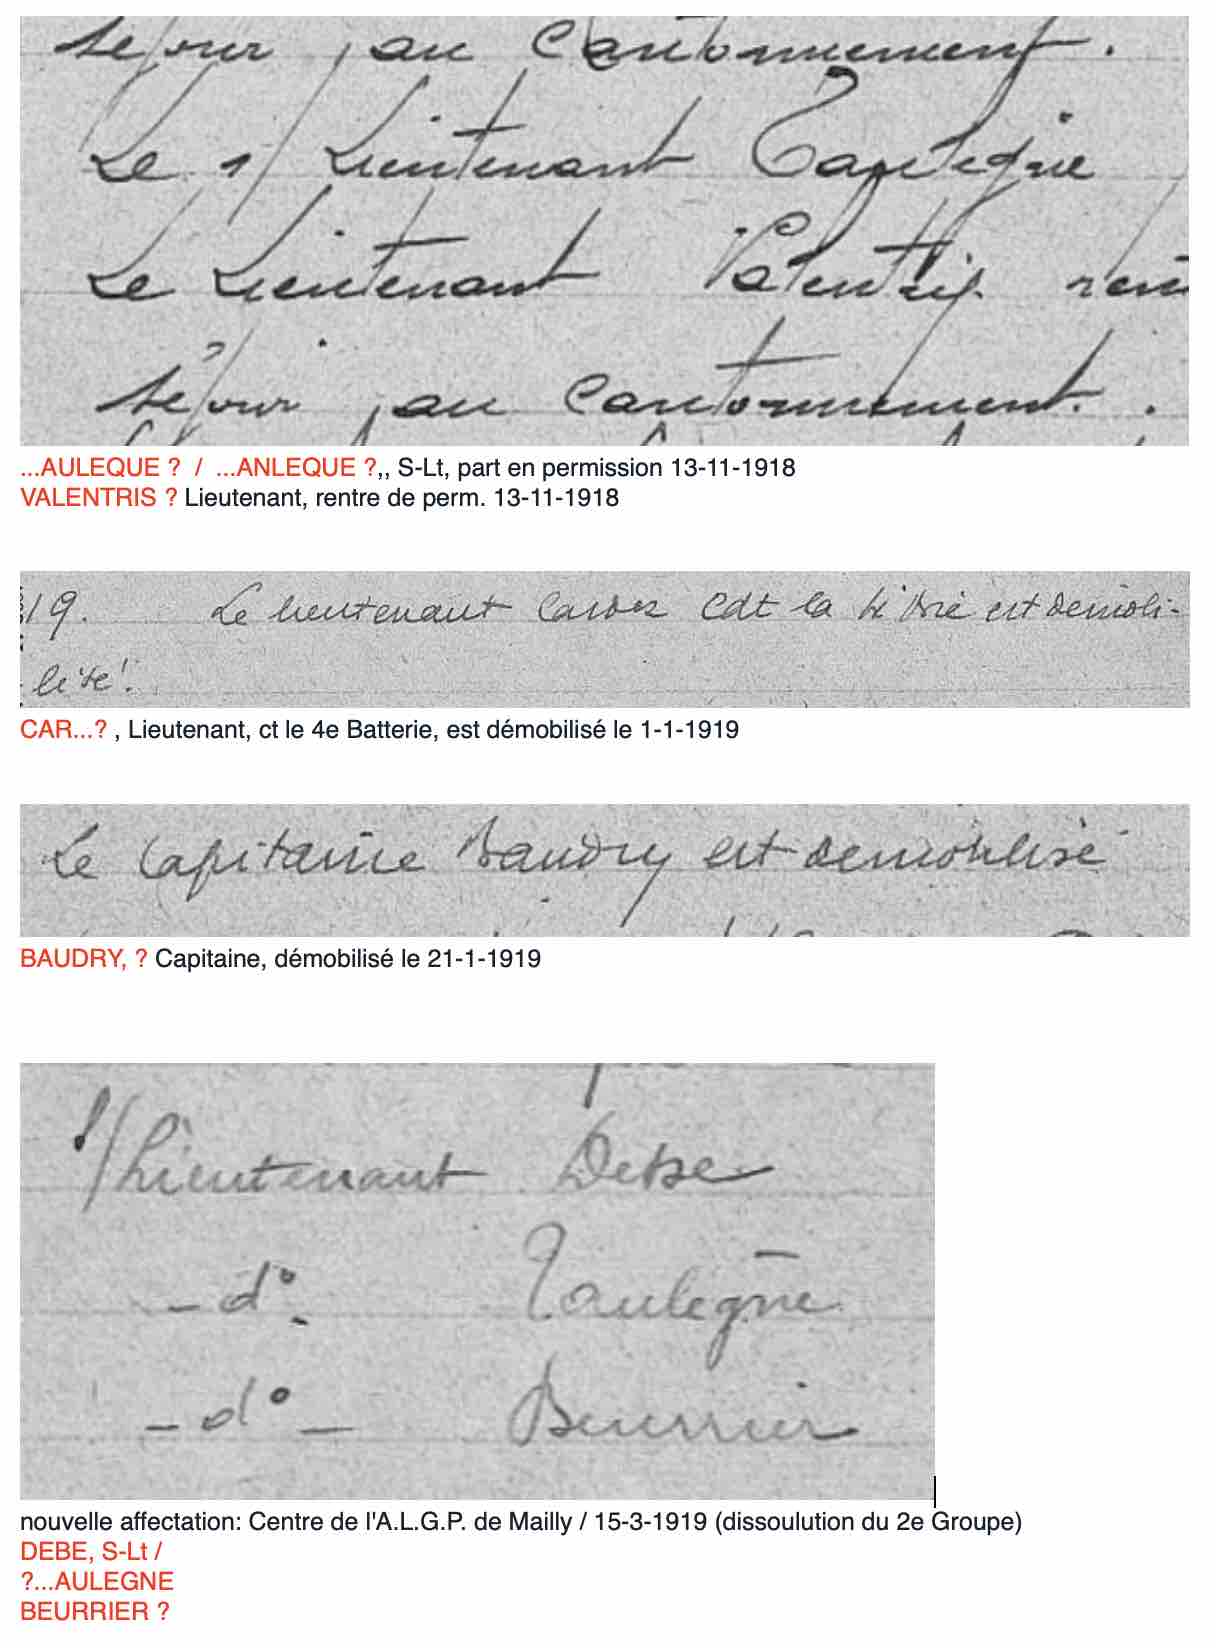 séjour, au Cantonnement.
Le s/ Lieutenant
Le Lieutenant Valentin
séjour, au Cantonnement.
...AULEQUE ? / ...ANLEQUE ?,, S-Lt, part en permission 13-11-1918
VALENTRIS ? Lieutenant, rentre de perm. 13-11-1918
19. Le lieutenant Cdt la Bie est démobi-
lisé.
CAR...? , Lieutenant, ct le 4e Batterie, est démobilisé le 1-1-1919
Le Capitaine Baudry est démobilisé
BAUDRY, ? Capitaine, démobilisé le 21-1-1919
S/Lieutenant
- d°- Taulègne
- d° - Beurrier
nouvelle affectation: Centre de l'A.L.G.P. de Mailly / 15-3-1919 (dissoulution du 2e Groupe)
DEBE, S-Lt /
?...AULEGNE
BEURRIER ?